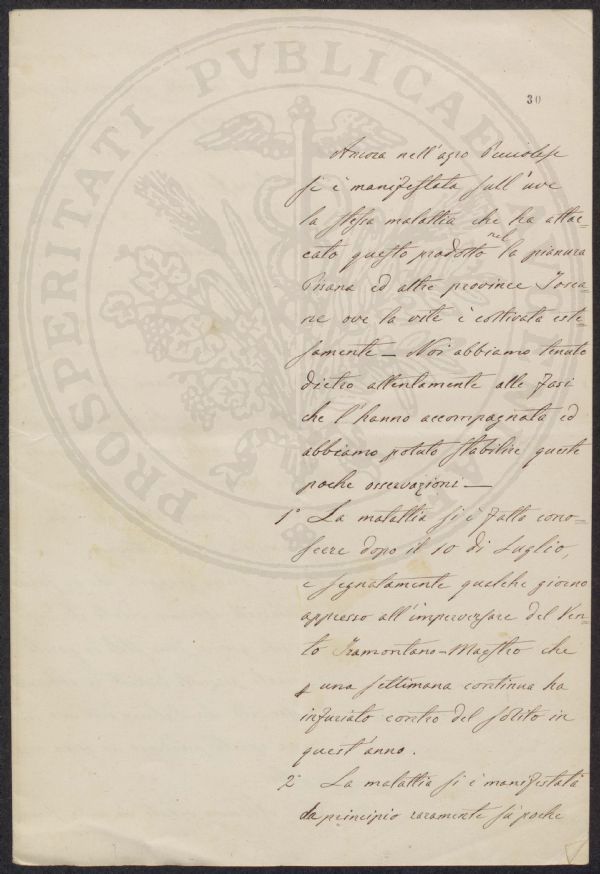 PROSPERITATI PVBLICAE
30
Ancora nell'agro Pecciolese
si è manifestata sull'uve
la stessa malattia che ha attac=
cato questo prodotto nel la pianura
Pisana ed altre province Tosca=
ne ove la vite è coltivata este=
samente — Noi abbiamo tenuto
dietro attentamente alle fasi
che l'hanno accompagnata ed
abbiamo potuto stabilire queste
poche osservazioni —
1° La malattia si è fatta cono=
scere dopo il 10 di Luglio,
e segnatamente qualche giorno
appresso all'imperversare del Ven=
to Tramontano-Maestro che
una settimana continua ha
infuriato contro del solito in
quest'anno.
2° La malattia si è manifestata
da principio raramente su poche